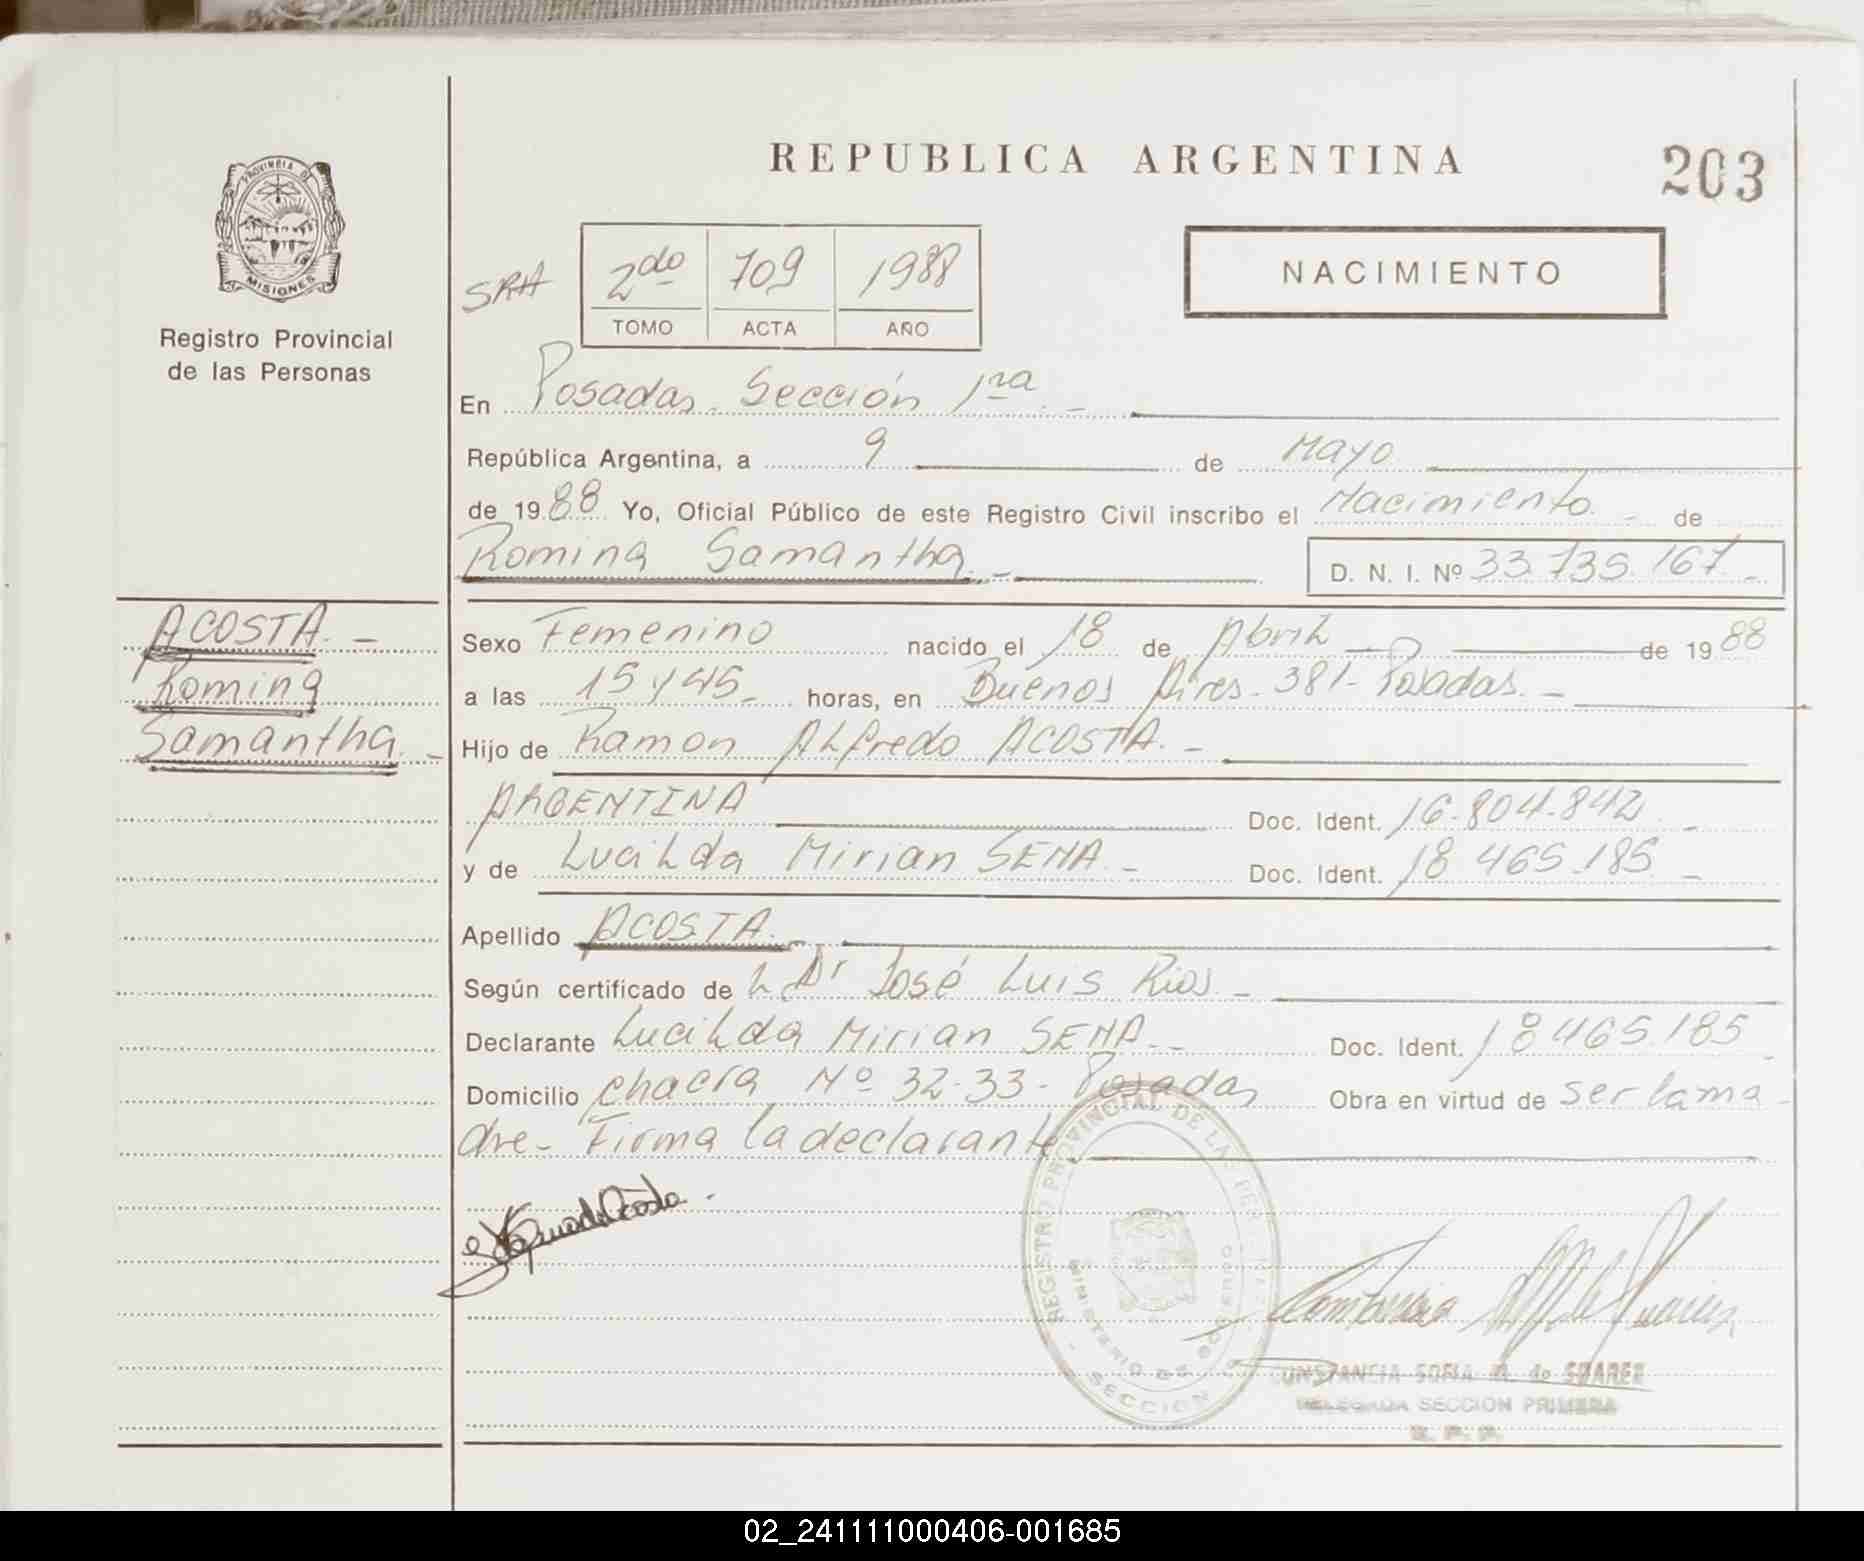 REPUBLICA ARGENTINA
203
PROVINCIA DE
MISIONES
Registro Provincial
de las Personas
SRA
2do 709 1988
TOMO ACTA AÑO
NACIMIENTO
En Posadas. Sección 1ra. -
República Argentina, a 9 de Mayo
de 1988 Yo, Oficial Público de este Registro Civil inscribo el Nacimiento. - de
Romina Samantha. -
D. N. I. Nº 33.735.167 -
ACOSTA. -
Romina
Samantha. -
Sexo Femenino nacido el 18 de Abril de 1988
a las 15 y 45 - horas, en Buenos Aires - 381 - Posadas. -
Hijo de Ramon Alfredo ACOSTA. -
ARGENTINA Doc. Ident. 16.804.842 -
y de Lucilda Mirian SENA. - Doc. Ident. 18 465.185 -
Apellido ACOSTA. -
Según certificado de L Dr José Luis Rios. -
Declarante Lucilda Mirian SENA. - Doc. Ident. 18465.185 -
Domicilio chacra Nº 32-33 - Posadas Obra en virtud de ser la ma -
dre - Firma la declarante.
REGISTRO PROVINCIAL DE LAS PER
MINISTERIO DE GOBIERNO
SECCION
CONSTANCIA SOFIA de SUAREZ
DELEGADA SECCION PRIMERA
R. P. P.
02_241111000406-001685